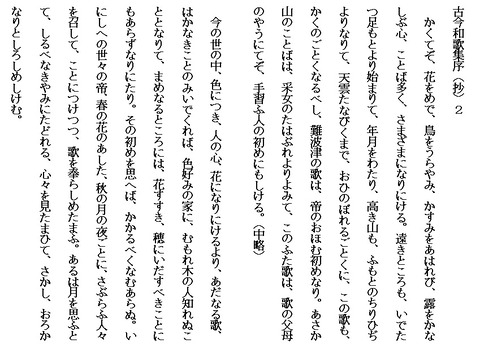 古今和歌集序（抄）　２
　かくてぞ、花をめで、鳥をうらやみ、かすみをあはれび、露をかな
しぶ心、ことば多く、さまざまになりにける。遠きところも、いでた
つ足もとより始まりて、年月をわたり、高き山も、ふもとのちりひぢ
よりなりて、天雲たなびくまで、おひのぼれるごとくに、この歌も、
かくのごとくなるべし。難波津の歌は、帝のおほむ初めなり。あさか
山のことばは、采女のたはぶれよりよみて、このふた歌は、歌の父母
のやうにてぞ、手習ふ人の初めにもしける。（中略）
　今の世の中、色につき、人の心、花になりにけるより、あだなる歌、
はかなきことのみいでくれば、色好みの家に、むもれ木の人知れぬこ
ととなりて、まめなるところには、花すすき、穂にいだすべきことに
もあらずなりにたり。その初めを思へば、かかるべくなむあらぬ。い
にしへの世々の帝、春の花のあした、秋の月の夜ごとに、さぶらふ人々
を召して、ことにつけつつ、歌を奉らしめたまふ。あるは月を思ふと
て、しるべなきやみにたどれる、心々を見たまひて、さかし、おろか
なりとしろしめしけむ。